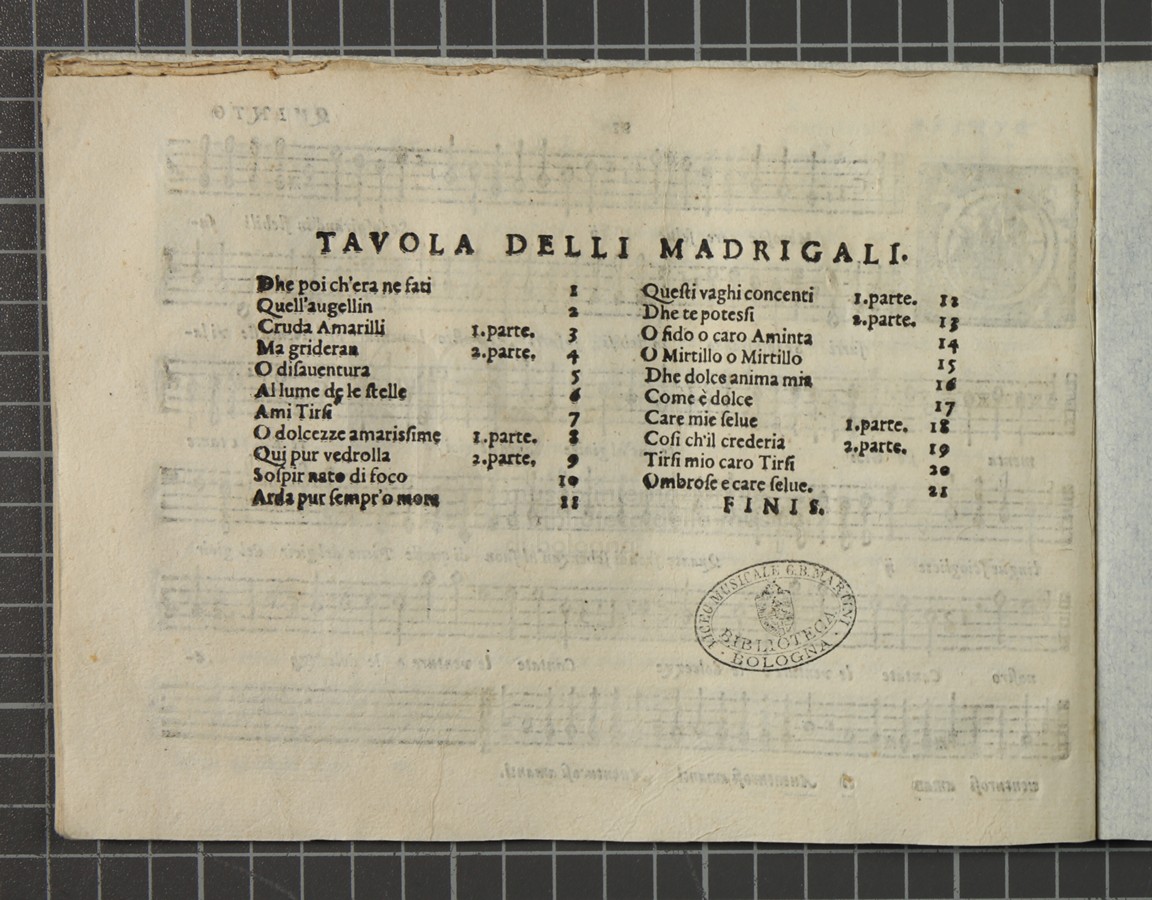 TAVOLA DELLI MADRIGALI.
Dhe poi ch'era ne fati 1
Quell'augellin 2
Cruda Amarilli 1.parte. 3
Ma grideran 2.parte. 4
O disauentura 5
Al lume de le stelle 6
Ami Tirsi 7
O dolcezze amarissime 1.parte. 8
Qui pur vedrolla 2.parte. 9
Sospir nato di foco 10
Arda pur sempr'o mora 11
Questi vaghi concenti 1.parte. 12
Dhe te potessi 2.parte. 13
O fido o caro Aminta 14
O Mirtillo o Mirtillo 15
Dhe dolce anima mia 16
Come è dolce 17
Care mie selue 1.parte. 18
Cosi ch'il crederia 2.parte. 19
Tirsi mio caro Tirsi 20
Ombrose e care selue. 21
FINIS.
LICEO MUSICALE G.B. MARTINI
BIBLIOTECA
· BOLOGNA ·